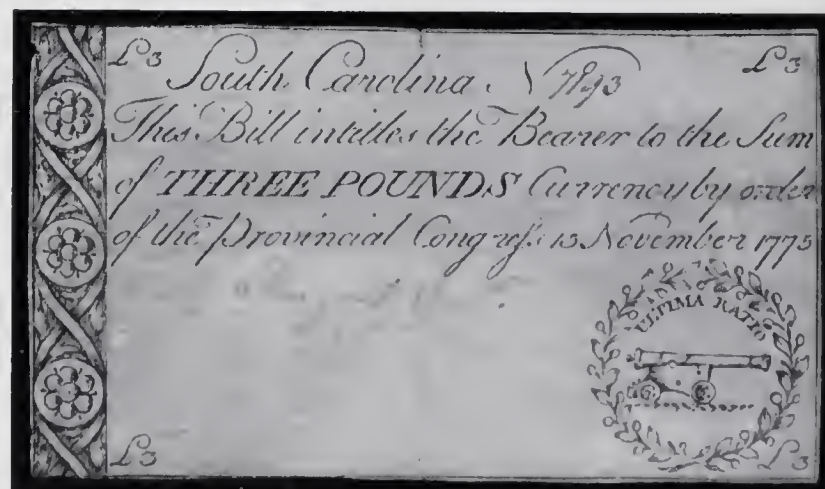 £3 South Carolina N 7893 £3
This Bill intitles the Bearer to the Sum
of THREE POUNDS Currency by order
of the Provincial Congress 15 November 1775
ULTIMA RATIO
£3 £3